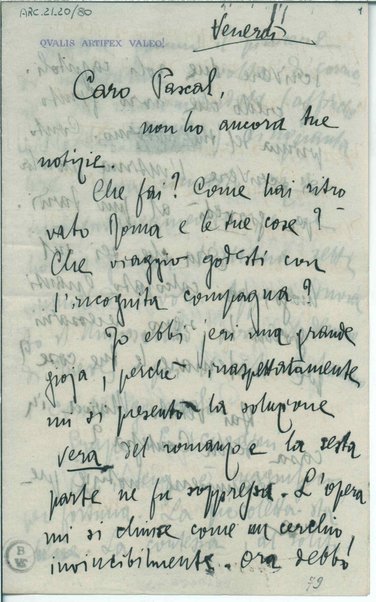 ARC.21.20/80
1
QVALIS ARTIFEX VALEO!
Venerdì
Caro Pascal,
non ho ancora tue
notizie.
Che fai? Come hai ritro-
vato Roma e le tue cose?
Che viaggio godesti con
l'incognita compagna?
Io ebbi jeri una grande
gioja, perchè inaspettatamente
mi si presentò la soluzione
vera del romanzo e la sesta
parte ne fu soppressa. L'opera
mi si chiuse, come un cerchio,
invincibilmente. Ora debbo
79